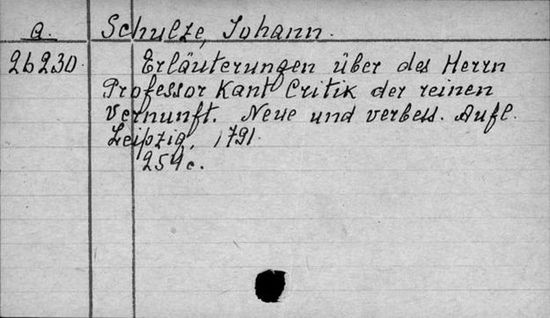 a. Schulze, Johann.
26230. Erläuterungen über des Herrn
Professor Kant Critik der reinen
Vernunft. Neue und verbess. Aufl.
Leipzig, 1791.
254c.